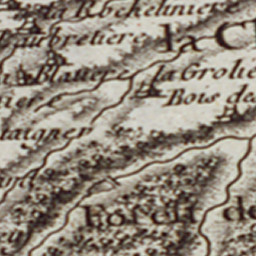 la Rockeliniere
l'aubretiere
la Ch
la Blatiere
la Grolie
Bois de
niere
taigner
Forest de